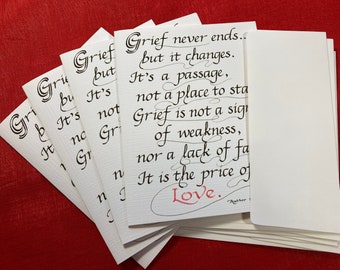 Grief never ends...
but it changes.
It's a passage,
not a place to sta
Grief is not a sign
of weakness,
nor a lack of fa
It is the price of
Love.
Grief
but
It's
no
Grief
o
nor
It